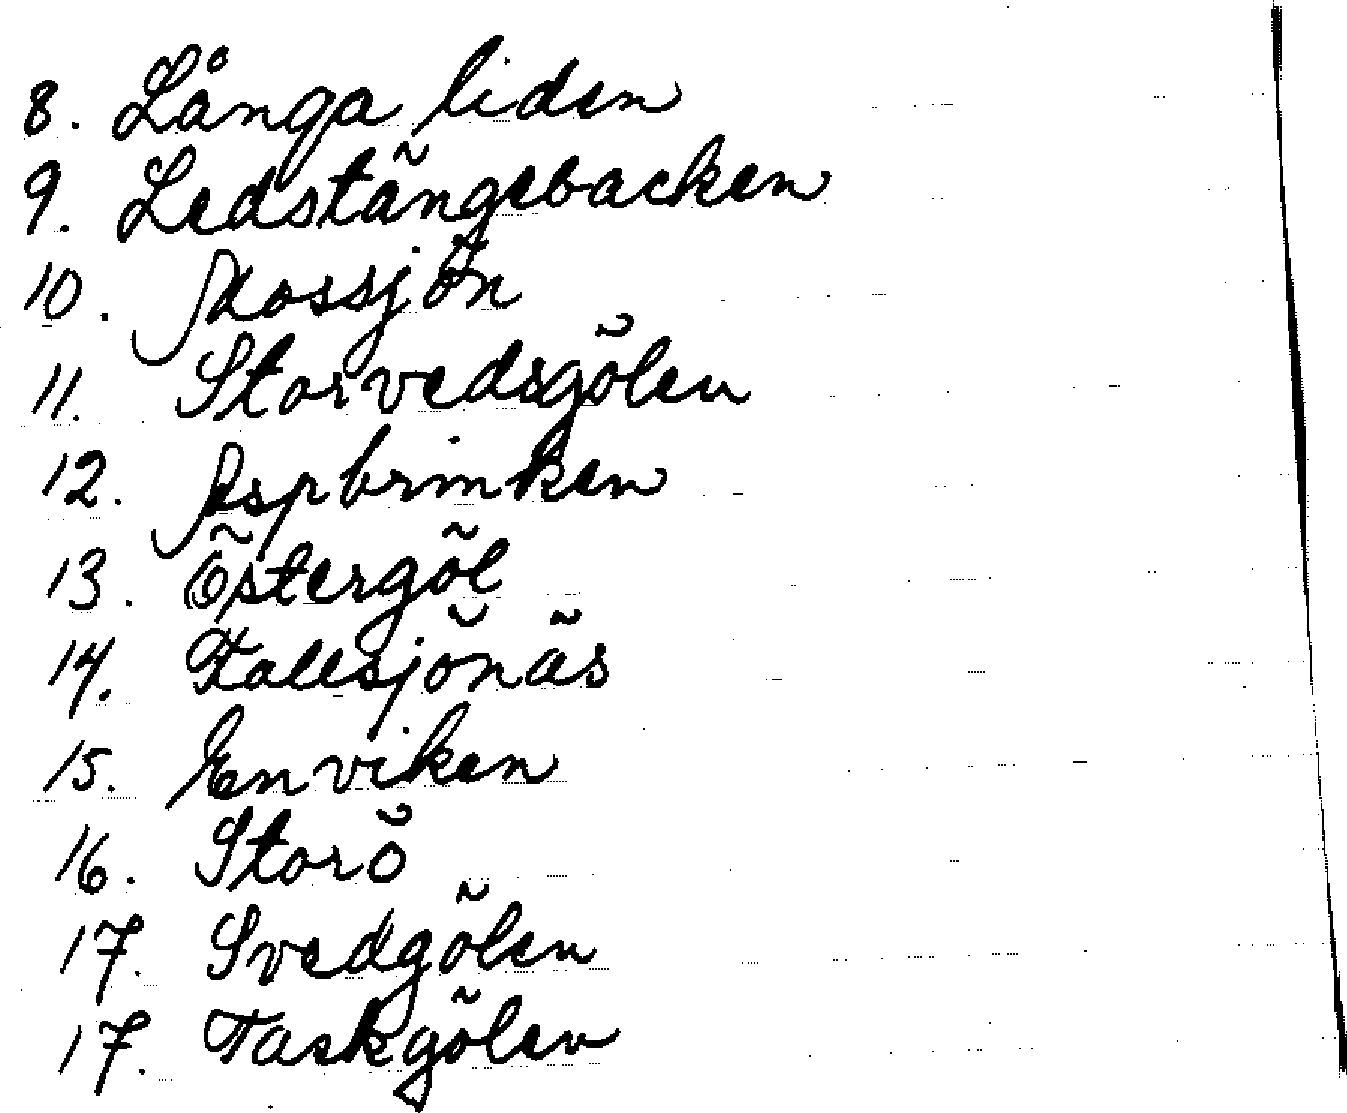 8. Långa liden
9. Ledstängsbacken
10. Mossjön
11. Storvedsgölen
12. Aspbrinken
13. Östergöl
14. Fallsjönäs
15. Enviken
16. Storö
17. Svedgölen
17. Taskgölen